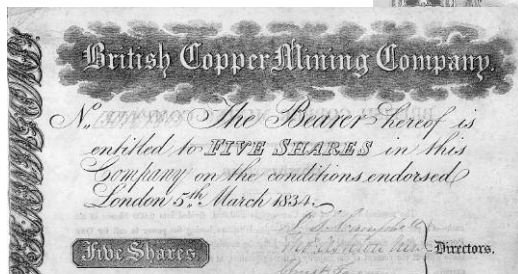 British Copper Mining Company.
No. The Bearer hereof is
entitled to FIVE SHARES in this
Company on the conditions endorsed
London 5th March 1834.
Five Shares
Directors.